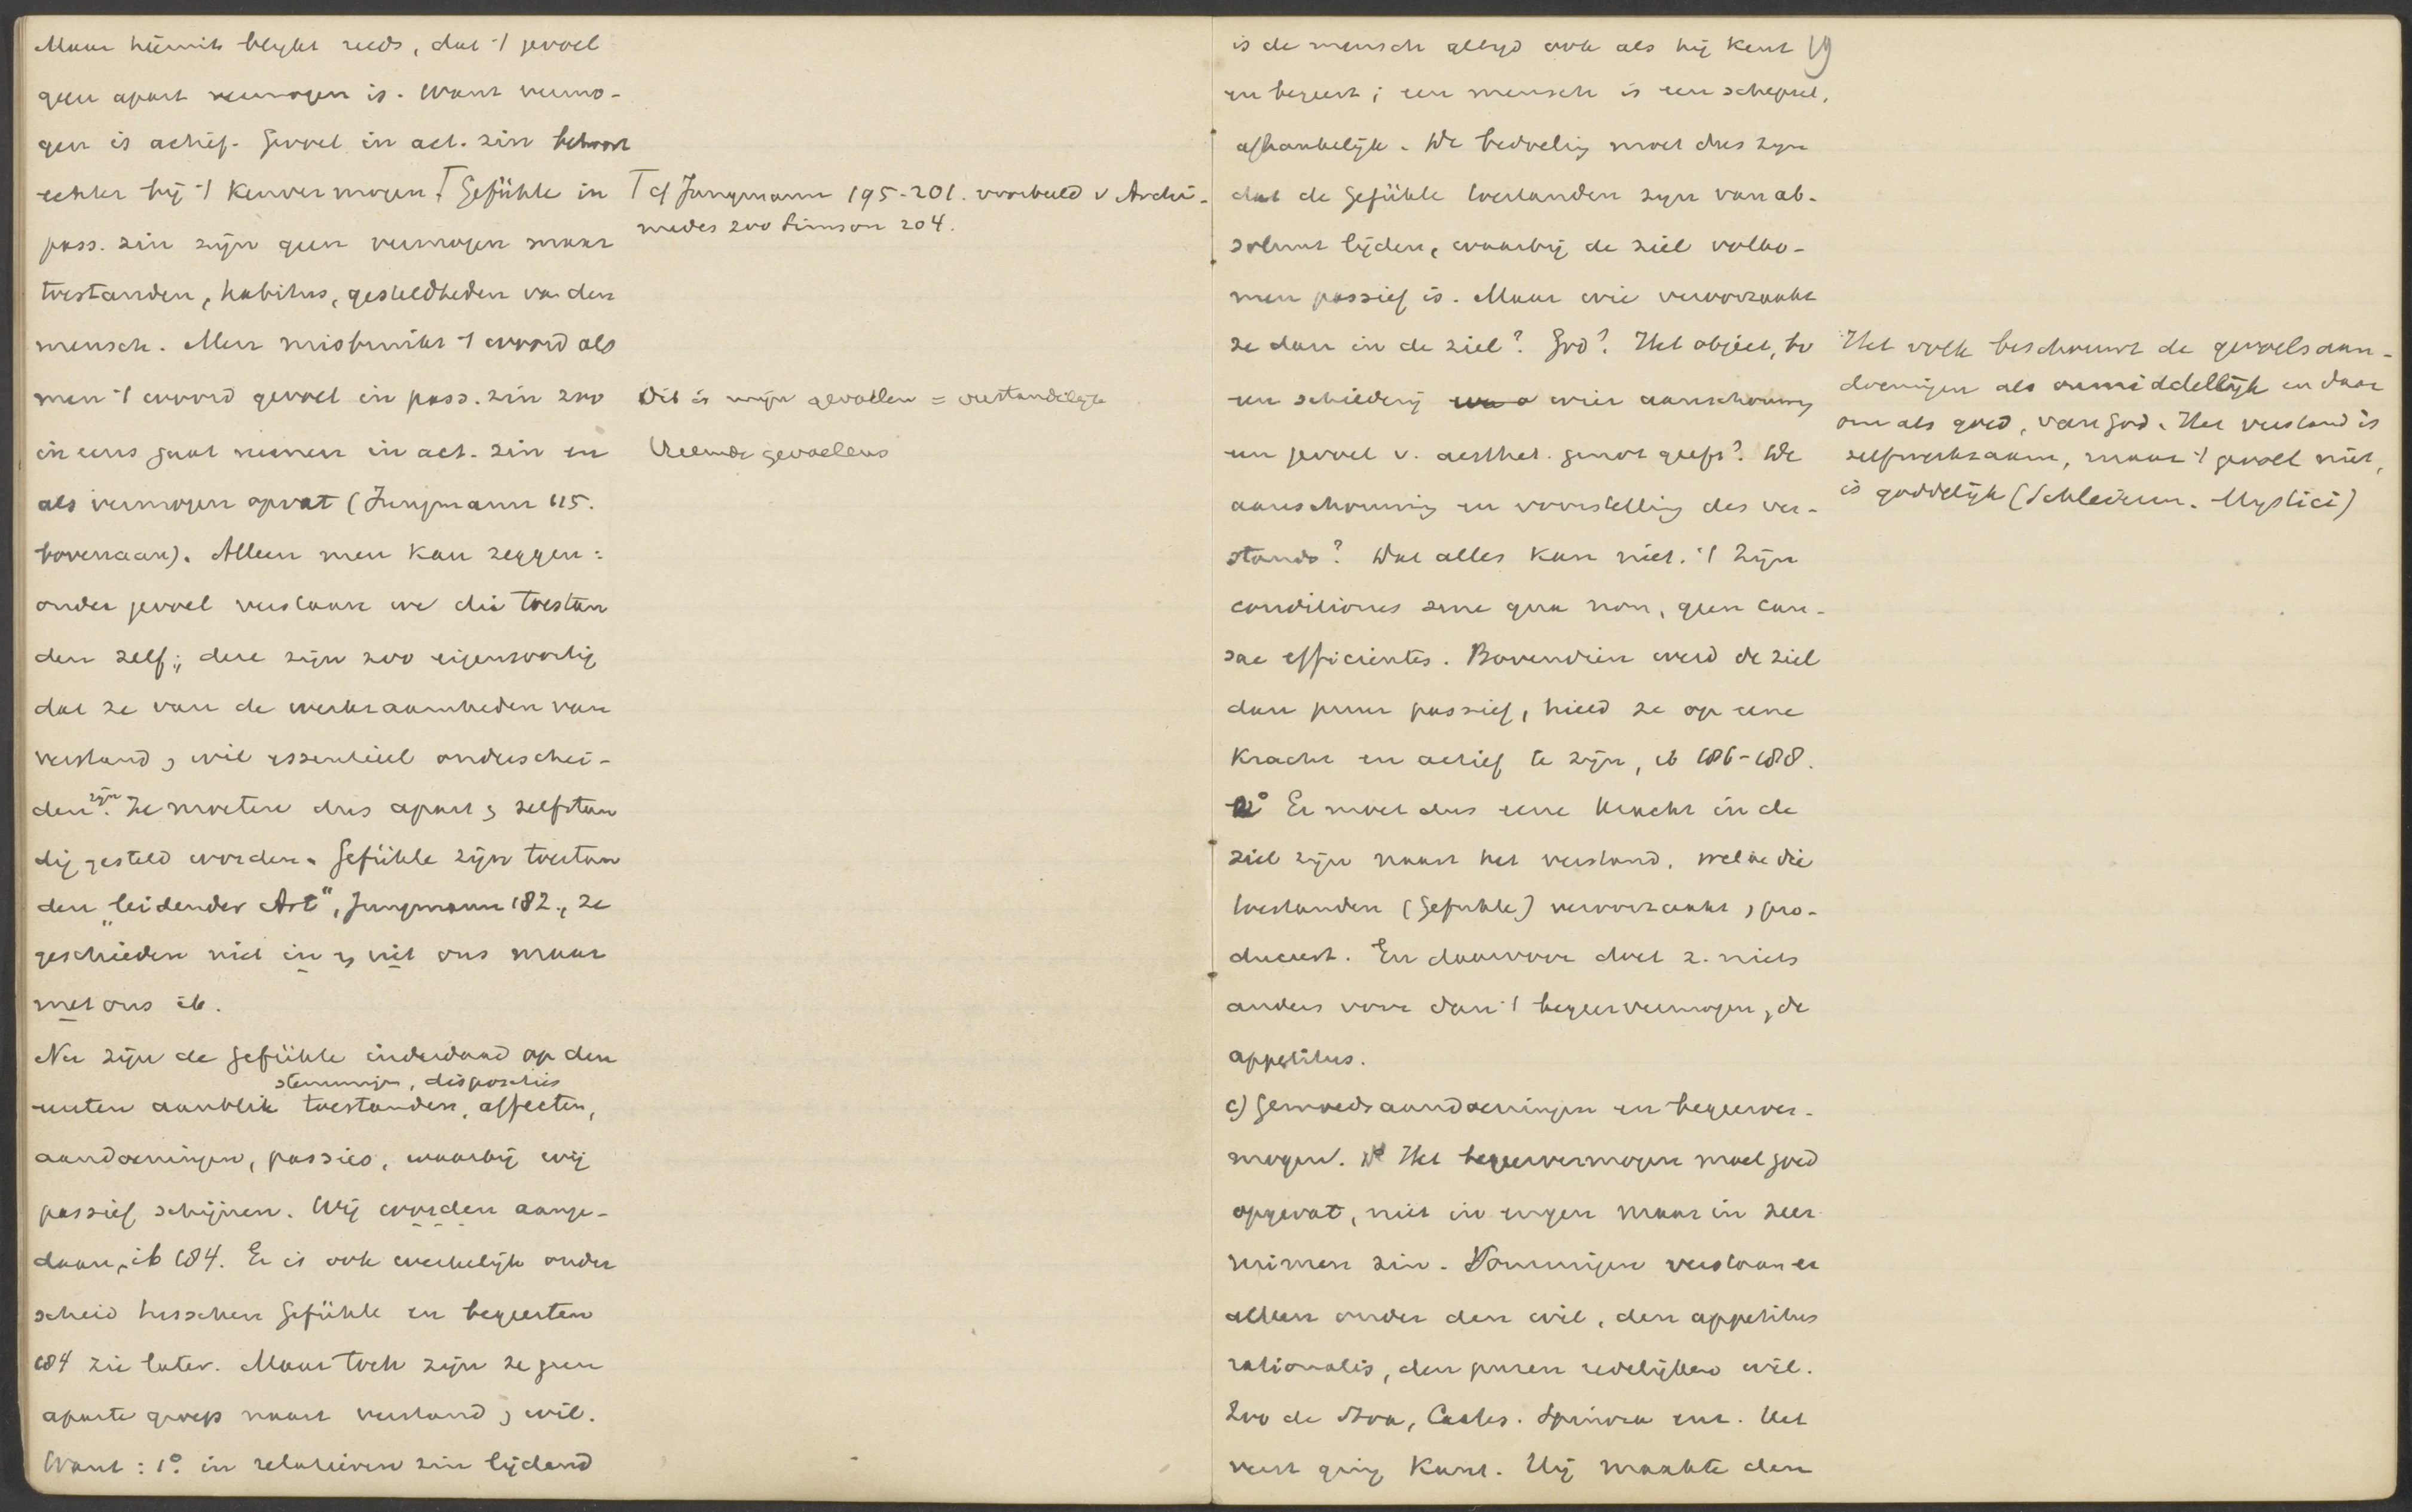 Maar hiermit blijkt reeds, dat 't gevoel
geen apart vermogen is. Want vermo-
gen is actief. Gevoel in act. zin behoort
echter bij 't kenvermogen. Gefühle in
pass. zin zijn geen vermogen maar
toestanden, habitus, gesteldheden van den
mensch. Men misbruikt 't woord als
men 't woord gevoel in pass. zin zoo
in eens gaat nemen in act. zin en
als vermogen opvat (Jungmann 115.
bovenaan). Alleen men kan zeggen:
onder gevoel verstaan we die toestan
den zelf; deze zijn zoo eigensoortig
dat ze van de werkzaamheden van
verstand & wil essentieel onderschei-
den zijn. Ze moeten dus apart & zelfstan
dig gesteld worden. Gefühle zijn toestan
den „leidender Art", Jungmann 182., ze
geschieden niet in & uit ons maar
met ons ib.
Nu zijn de Gefühle inderdaad op den
stemmingen, disposities
eersten aanblik toestanden, affecten,
aandoeningen, passies, waarbij wij
passief schijnen. Wij worden aange-
daan, ib 184. Er is ook werkelijk onder
scheid tusschen Gefühle en begeerten
184 zie later. Maar toch zijn ze geen
aparte groep naast verstand & wil.
Want: 1º. in relatieven zin lijdend
cf Jungmann 195-201. voorbeeld v Archi-
medes 200 Simson 204.
Dit is mijn gevoelen = verstandelijk
Vreemde gevoelens
is de mensch altijd ook als hij kent 19
en begeert; een mensch is een schepsel,
afhankelijk. De bedoeling moet dus zijn
dat de Gefühle toestanden zijn van ab-
soluut lijden, waarbij de ziel volko-
men passief is. Maar wie veroorzaakt
ze dan in de ziel? God? Het object, bv
een schilderij wier aanschouwing
een gevoel v. aesthet. genot geeft? De
aanschouwing en voorstelling des ver-
stands? Dat alles kan niet. 't Zijn
conditiones sine qua non, geen cau-
sae efficientes. Bovendien werd de ziel
dan puur passief, hield ze op eene
kracht en actief te zijn, ib 186-188.
2º Er moet dus eene kracht in de
ziel zijn naast het verstand, welke die
toestanden (Gefühle) veroorzaakt, pro-
duceert. En daarvoor doet z. niets
anders voor dan 't begeervermogen, de
appetitus.
c) Gemoedsaandoeningen en begeerver-
mogen. Het begeervermogen moet goed
opgevat, niet in engen maar in zeer
ruimen zin. Sommigen verstaan er
alleen onder den wil, den appetitus
rationalis, den puren redelijken wil.
Zoo de Stoa, Cartes. Spinoza enz. Het
verst ging Kant. Hij maakte den
Het volk beschouwt de gevoelsaan-
doeningen als onmiddellijk en daar
om als goed, van God. Het verstand is
zelfwerkzaam, maar 't gevoel niet,
is goddelijk (Schleierm. Mystici)